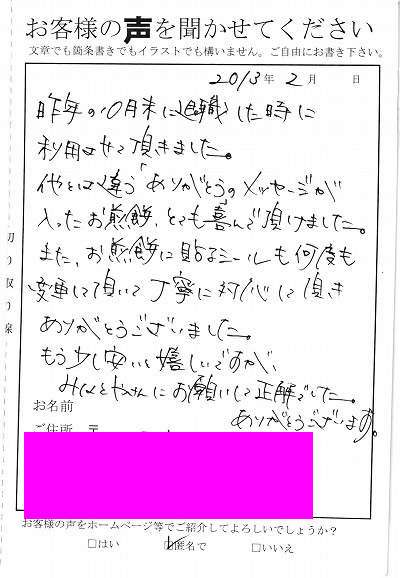 お客様の声を聞かせてください
文章でも箇条書きでもイラストでも構いません。ご自由にお書き下さい。
2013年 2月 日
昨年の10月末に退職した時に
利用させて頂きました。
他とは違う「ありがとう」のメッセージが
入ったお煎餅、とても喜んで頂けました。
また、お煎餅に貼るシールも何度も
変更して頂いて丁寧に対応して頂き
ありがとうございました。
もう少し安いと嬉しいですが、
みんとやさんにお願いして正解でした。
ありがとうございます。
切り取り線
お名前
ご住所 〒
お客様の声をホームページ等でご紹介してよろしいでしょうか?
□はい ☑匿名で □いいえ